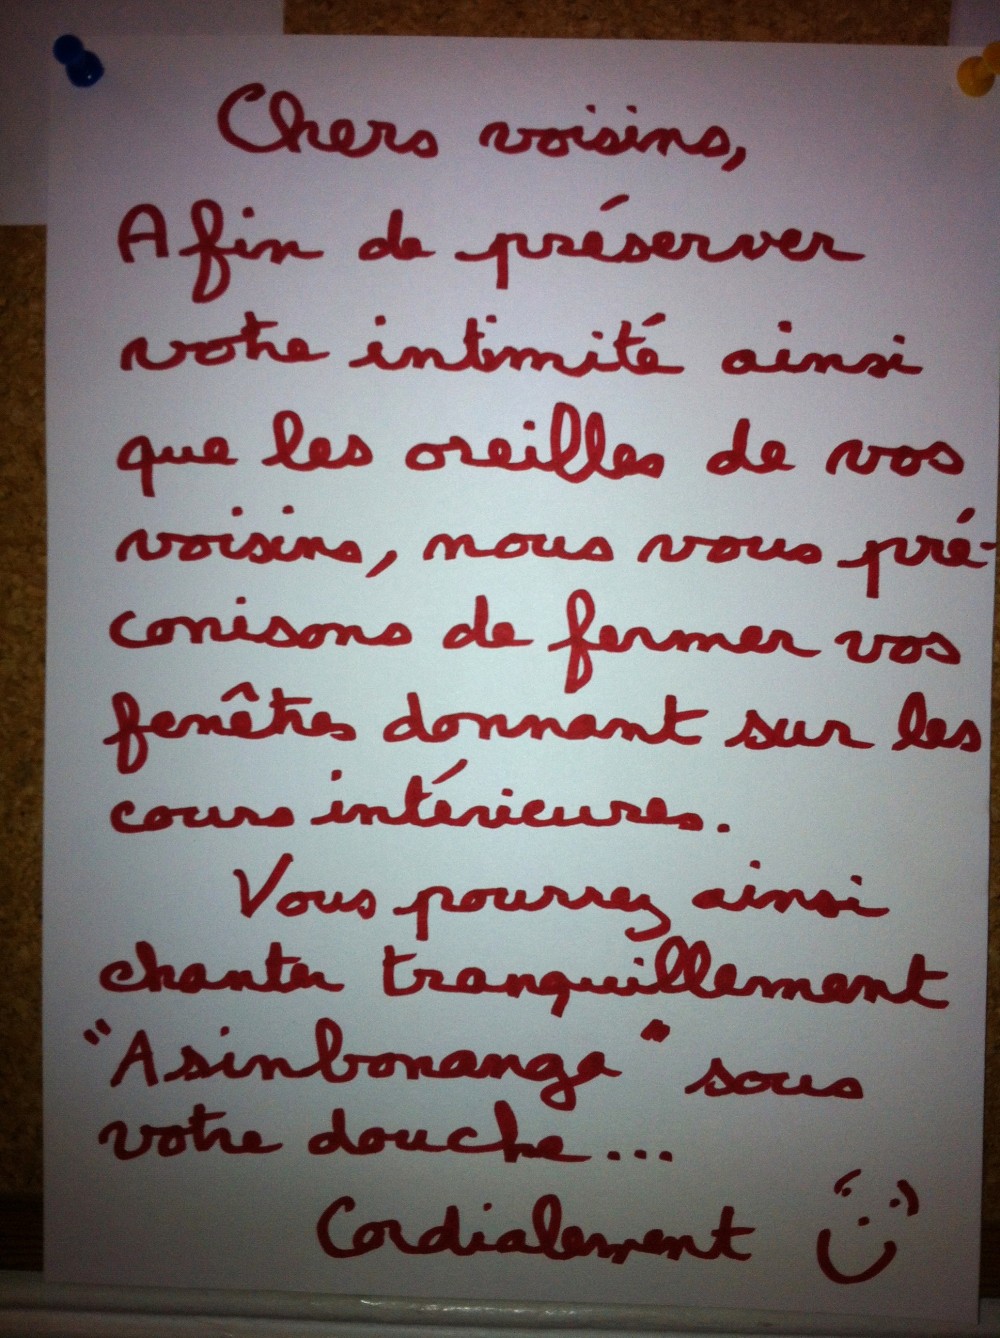 Chers voisins,
Afin de préserver
votre intimité ainsi
que les oreilles de vos
voisins, nous vous pré-
conisons de fermer vos
fenêtres donnant sur les
cours intérieures.
Vous pourrez ainsi
chanter tranquillement
"Asinbonanga" sous
votre douche...
Cordialement